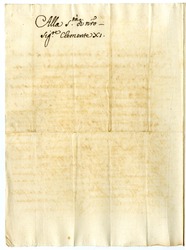 Alla S.tà di nro
Sig.re Clemente XI.